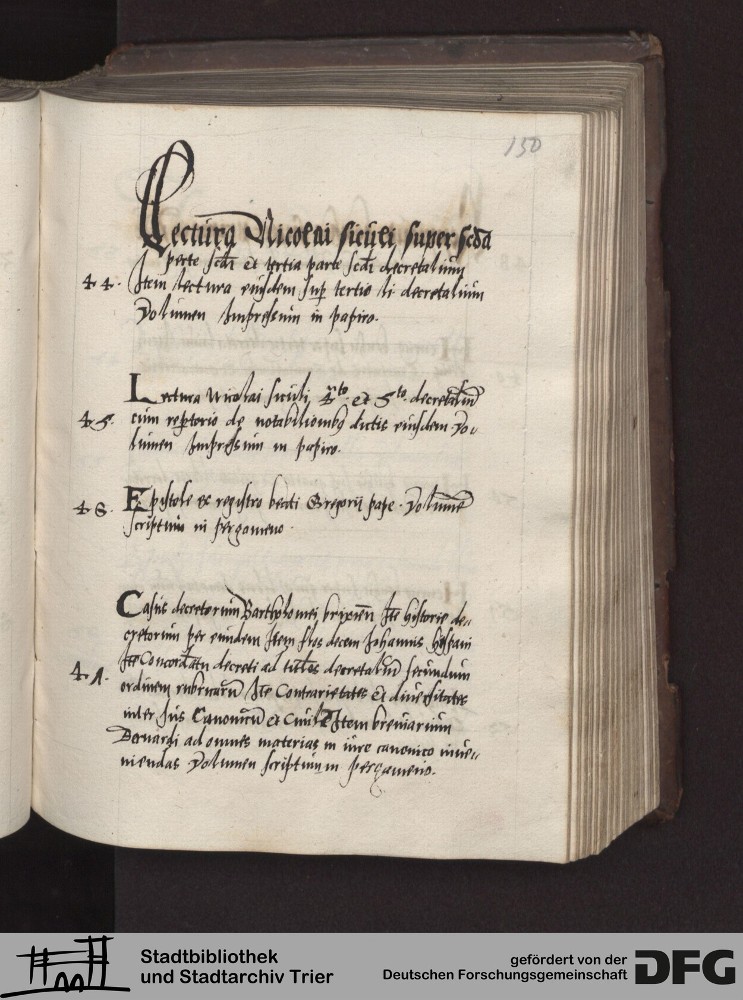 150
Lectura Nicolai siculi super scda
parte scdi et tertia parte scdi decretalium
44. Item lectura eiusdem sup tertio li decretalium
Volumen Impressum in papiro.
Lectura Nicolai siculi, 4to. et 5to. decretaliu
45. cum reptorio de notabilionibz dictis eiusdem Vo-
lumen Impressum in papiro.
46. Epistole ex registro beati Gregorii pape. Volume
scriptum in pergameno.
Casus decretorum Bartholomei brixien Ite historie de-
cretorum per eundem Item flos decem Johannis hispani
Ite Concordatu decreti ad decretaliu secundum
47. ordinem rubricaru Ite Contrarietates Et diuersitates
inter Ius Canonicu et Ciuile Item breuiarium
Bernardi ad omnes materias in iure canonico inue-
niendas Volumen scriptum in pergameno.
Stadtbibliothek
und Stadtarchiv Trier
gefördert von der
Deutschen Forschungsgemeinschaft
DFG